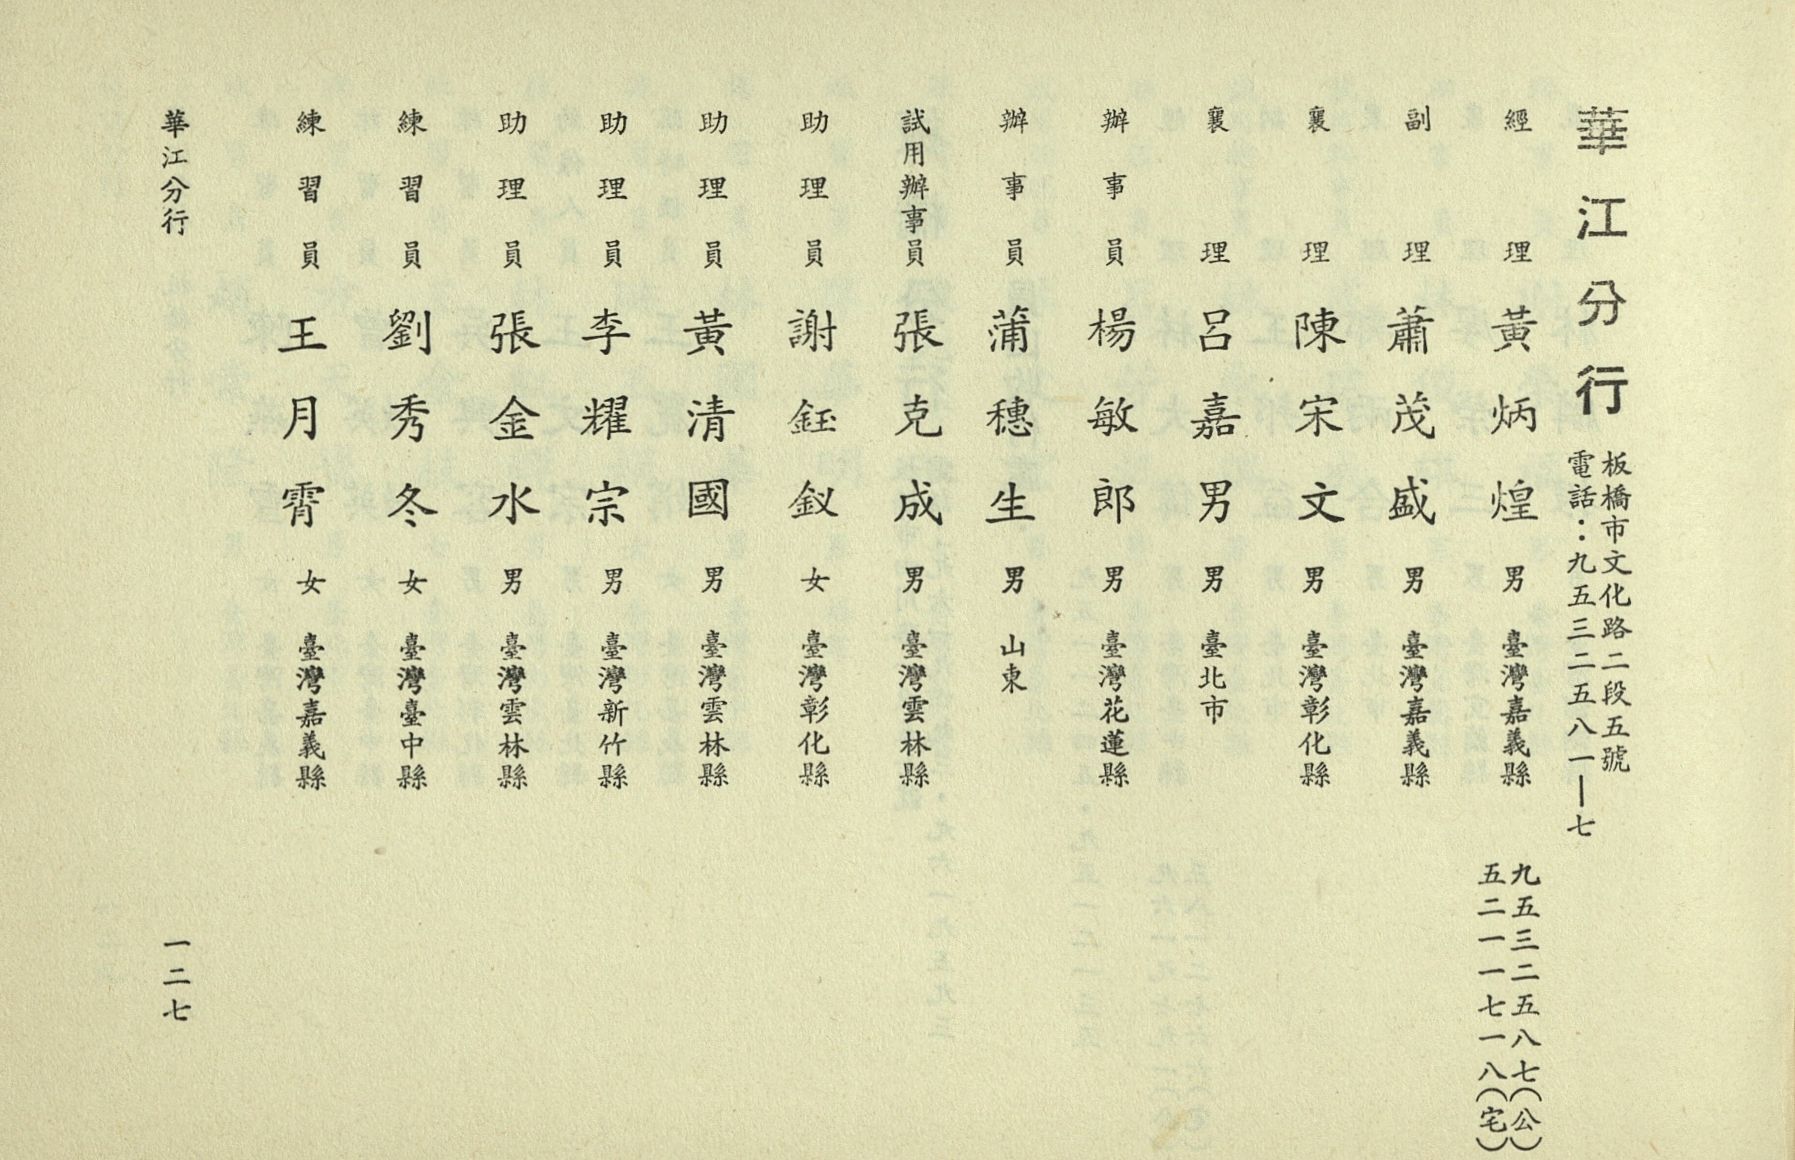 華江分行
板橋市文化路二段五號
電話：九五三二五八一—七
經理 黃炳煌 男 臺灣嘉義縣
九五三二五八七（公）
五二一一七一八（宅）
副理 蕭茂盛 男 臺灣嘉義縣
襄理 陳宋文 男 臺灣彰化縣
襄理 呂嘉男 男 臺北市
辦事員 楊敏郎 男 臺灣花蓮縣
辦事員 蒲穗生 男 山東
試用辦事員 張克成 男 臺灣雲林縣
助理員 謝鈺釵 女 臺灣彰化縣
助理員 黃清國 男 臺灣雲林縣
助理員 李耀宗 男 臺灣新竹縣
助理員 張金水 男 臺灣雲林縣
練習員 劉秀冬 女 臺灣臺中縣
練習員 王月霄 女 臺灣嘉義縣
華江分行
一二七